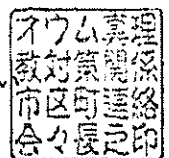 オウム真理
教対策関係
市区町連絡
会々長之印